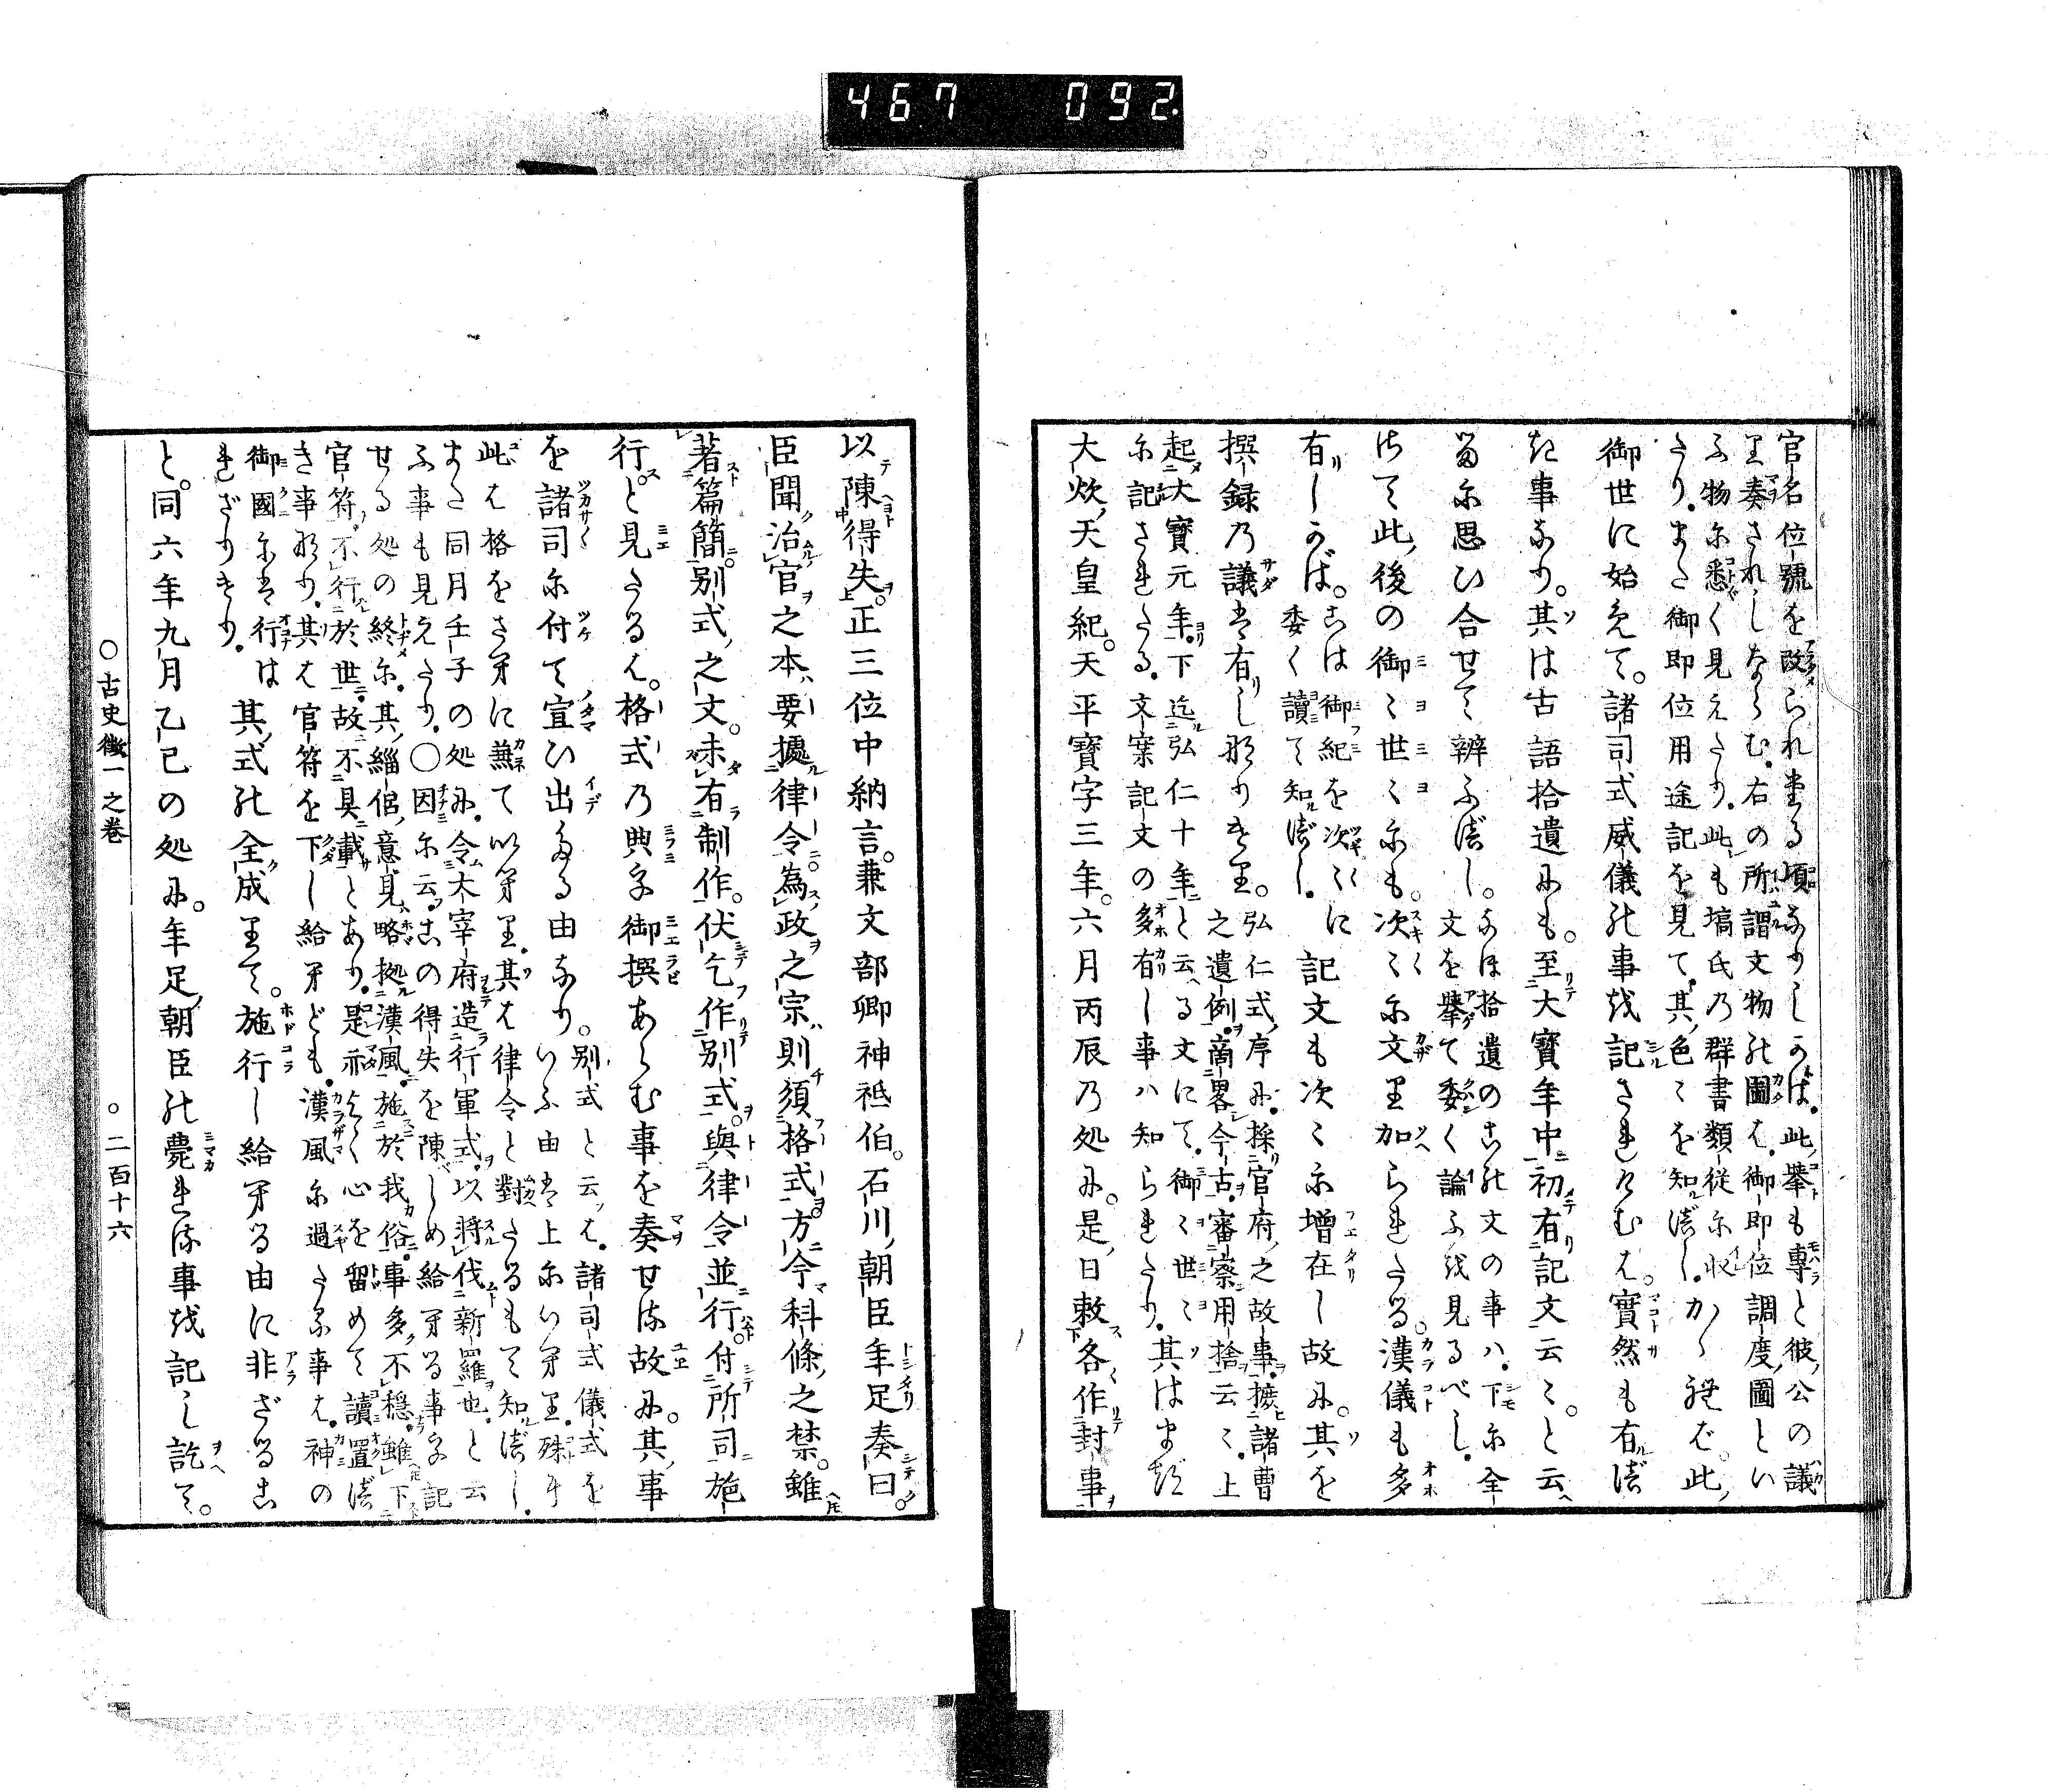 467 092.
官名位號を改られ坐る頃なりしかば。此擧も專と彼公の議
り奏されしならむ。右の所謂文物の圖は。御即位調度圖とい
ふ物に悉く見えたり。此も塙氏の群書類從に收
たり。また御即位用途記を見て。其色々を知べし。かゝれば。此
御世に始めて。諸司式威儀の事を記されけむは。實然も有べ
き事なり。其は古語拾遺にも。至大寶年中初有記文云々。と云
るに思ひ合せて辨ふべし。なほ拾遺のこの文の事は。下に全
文を擧て委く論ふを見るべし。
さて此後の御々世々にも。次々に文り加られたる。漢儀も多
有しかば。こは御紀を次々に
委く讀て知べし。記文も次々に增在し故に。其を
撰録の議は有しなりけり。弘仁式序に。採官府之故事。摭諸曹
之遺例。商畧今古。審察用捨云々。上
起大寶元年。下迄弘仁十年と云る文にて。御々世々其はまづ
に記されたる。文案記文の多有し事は知られたり。
大炊天皇紀。天平寶字三年。六月丙辰の処に。是日敕各作封事
以陳得失。正三位中納言。兼文部卿神祗伯。石川朝臣年足奏曰。
臣聞治官之本。要據律令。為政之宗。則須格式。方今科條之禁。雖
著篇簡。別式之文。未有制作。伏乞作別式。與律令並行。付所司施
行。と見えたるは。格式の典を御撰あらむ事を奏せる故に。其事
を諸司に付て宣ひ出たる由なり。別式と云は。諸司式儀式を
いふ由は上にいへり。殊に
此は格をさへに兼て以へり。其は律令と對たるもて知べし。
また同月壬子の処に。令太宰府造行軍式。以將伐新羅也。と云
ふ事も見えたり。○因に云。この得失を陳しめ給へる事を記
せる処の終に。其緇侶意見略。拠漢風。施於我俗。事多不穩。雖下
官符。不行於世。故不具載。とあり。是亦よく心を留めて讀置べ
き事なり。其は官符を下し給へども。漢風に過たる事は。神の
御國には行は
れざりきり。其式の全成りて。施行し給へる由に非ざるこ
と。同六年九月乙巳の処に。年足朝臣の薨れる事を記し訖て。
○古史徵一之卷
○二百十六